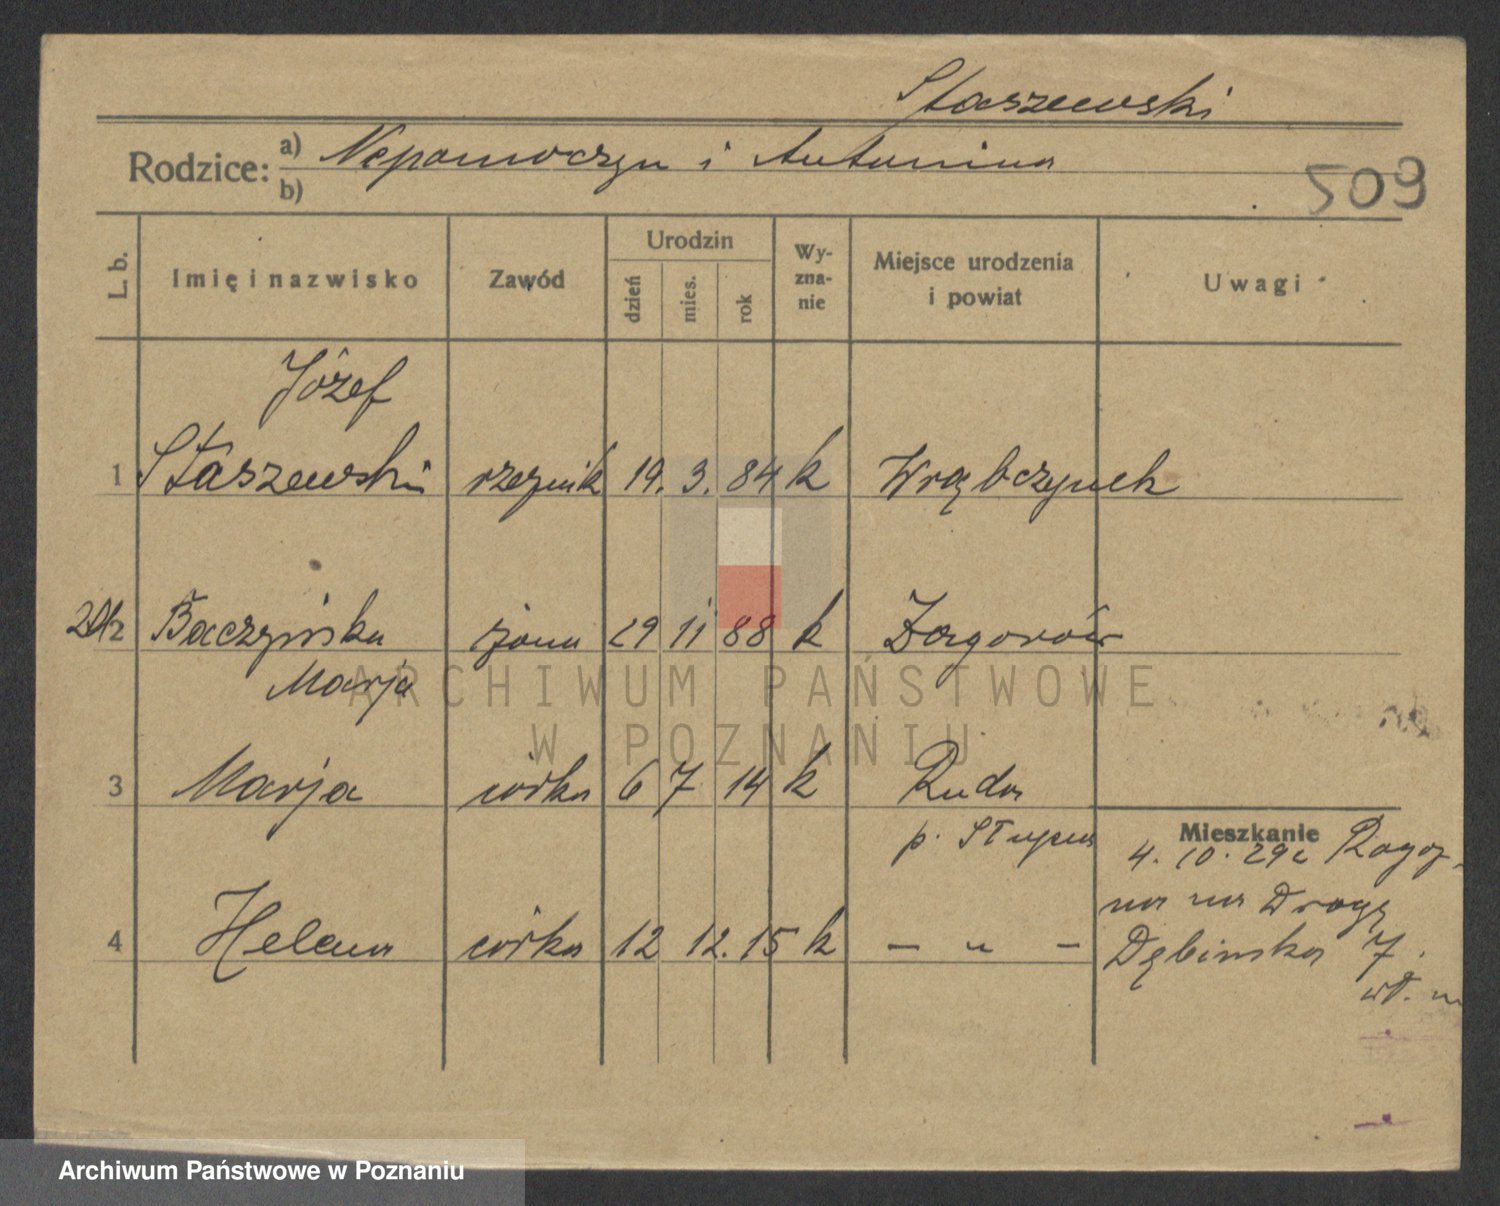 Staszewski
Rodzice: a) Nepomoczyn i Antonina
b)
509
L. b. Imię i nazwisko Zawód Urodzin dzień mies. rok Wy-zna-nie Miejsce urodzenia i powiat Uwagi
Józef
1 Staszewski rzeźnik 19. 3. 84 k Wrąbczynek
2 Baczyńska żona 29 11 88 k Zagorów
Marja
ARCHIWUM PAŃSTWOWE
W POZNANIU
3 Marja córka 6 7 14 k Ruda
p. Słupca
Mieszkanie
4. 10. 29 z Rogoź-
na na Drogę
4 Helena córka 12 12. 15 k — „ —
Dębińska 7.
Archiwum Państwowe w Poznaniu